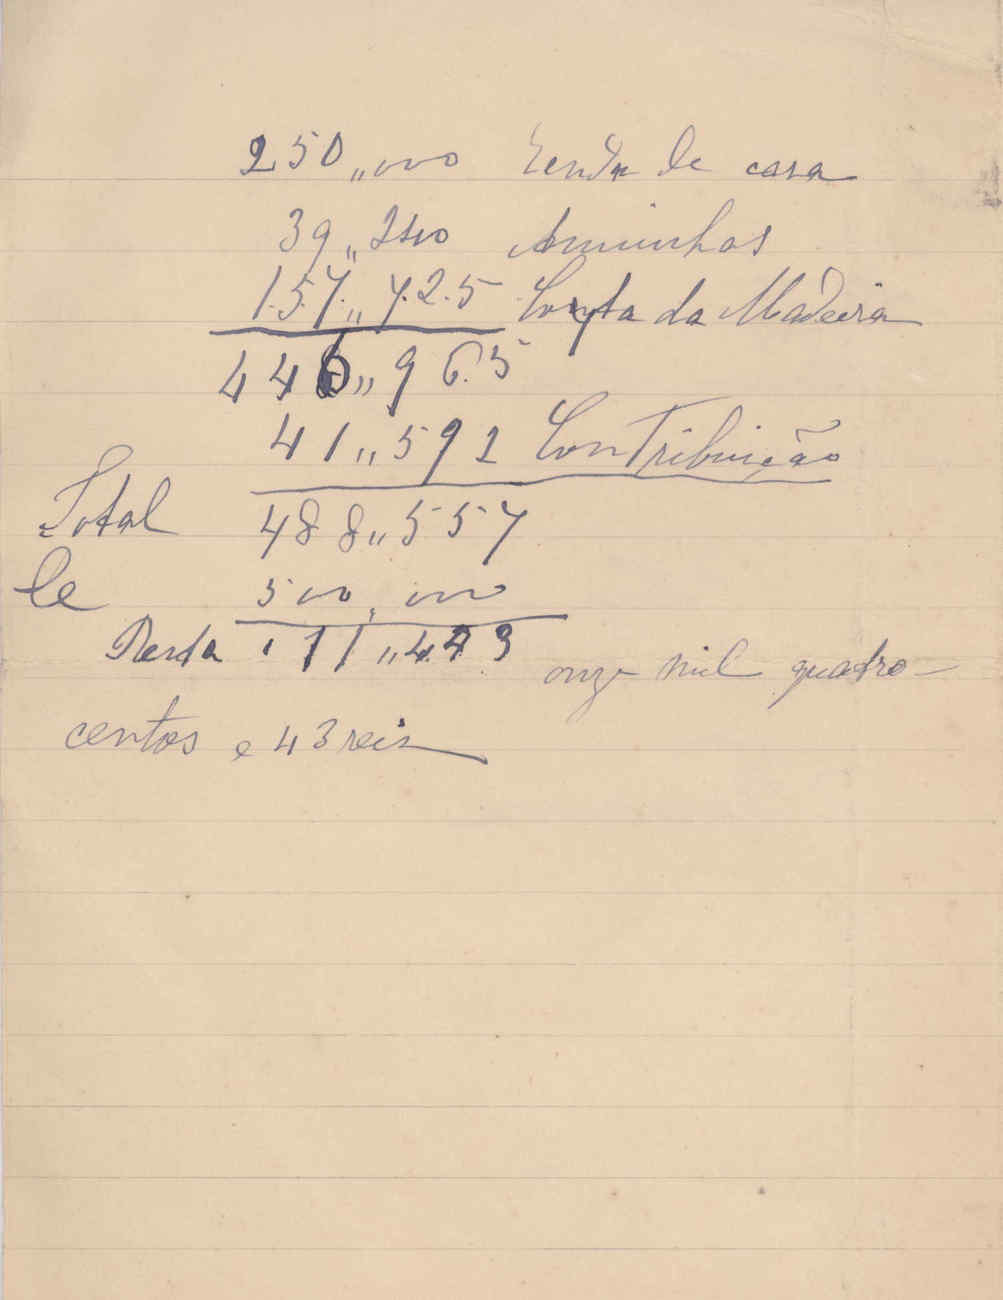 250,,000 Renda de casa
39,,240 Aminhas
157,,725 Conta da Madeira
446,,965
41,,592 Contribuição
Total 488,,557
le 500,000
Resta 11,,443 onze mil quatro-
centos e 43 reis